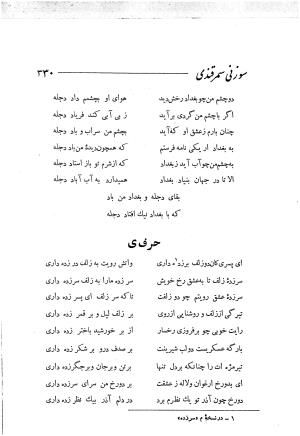 سوزنی سمرقندی ۳۳۰
دو چشم من چو بغداد رخش دید هوای او بچشمم داد دجله
اگر باچشم من گردی برآید ز بی آبی کند فریاد دجله
چنان بارم زعشق او که آید بچشم من سراب و باد دجله
به بغداد ار یکی نامه فرستم که همچون دیدهٔ من باد دجله
به چشم من چو آب آید ز بغداد که ازشرم تو باز استاد دجله
الا تا در جهان بنیاد بغداد همیدارد به آب آباد دجله
بقای دجله و بغداد من باد
که با بغداد نیك افتاد دجله
حرف ی
ای پسری کان دوزلف برزده داری واتش رویت به زلف در زده داری
سرزدهٔ زلف تا به عشق رخ خویش سر زده مارا به زلف سرزده داری
سرزدهٔ عشق رویتم چو دو زلفت تا که سر زلف ای پسر زده داری
تیرگی از زلف و روشنایی از روی بر زلف لیل و بر قمر زده داری
رایت خوبی چو برفروزی رخسار از بر خورشید باختر زده داری
بارگه عسکریست دولب شیرینت بر صدف و در و بر شکر زده داری
تیر مژه ات را چنانکه بردل تنها برتن وبرجان وبرجگرزده داری
ای بدورخ ارغوان ولاله ز عشقت بر دورخ من سرای زر زده داری
دورخ چون آذر تو یك نظرم برد در دلم آذر بیك نظر زده داری
۱ - در نسخهٔ م «سرزده»